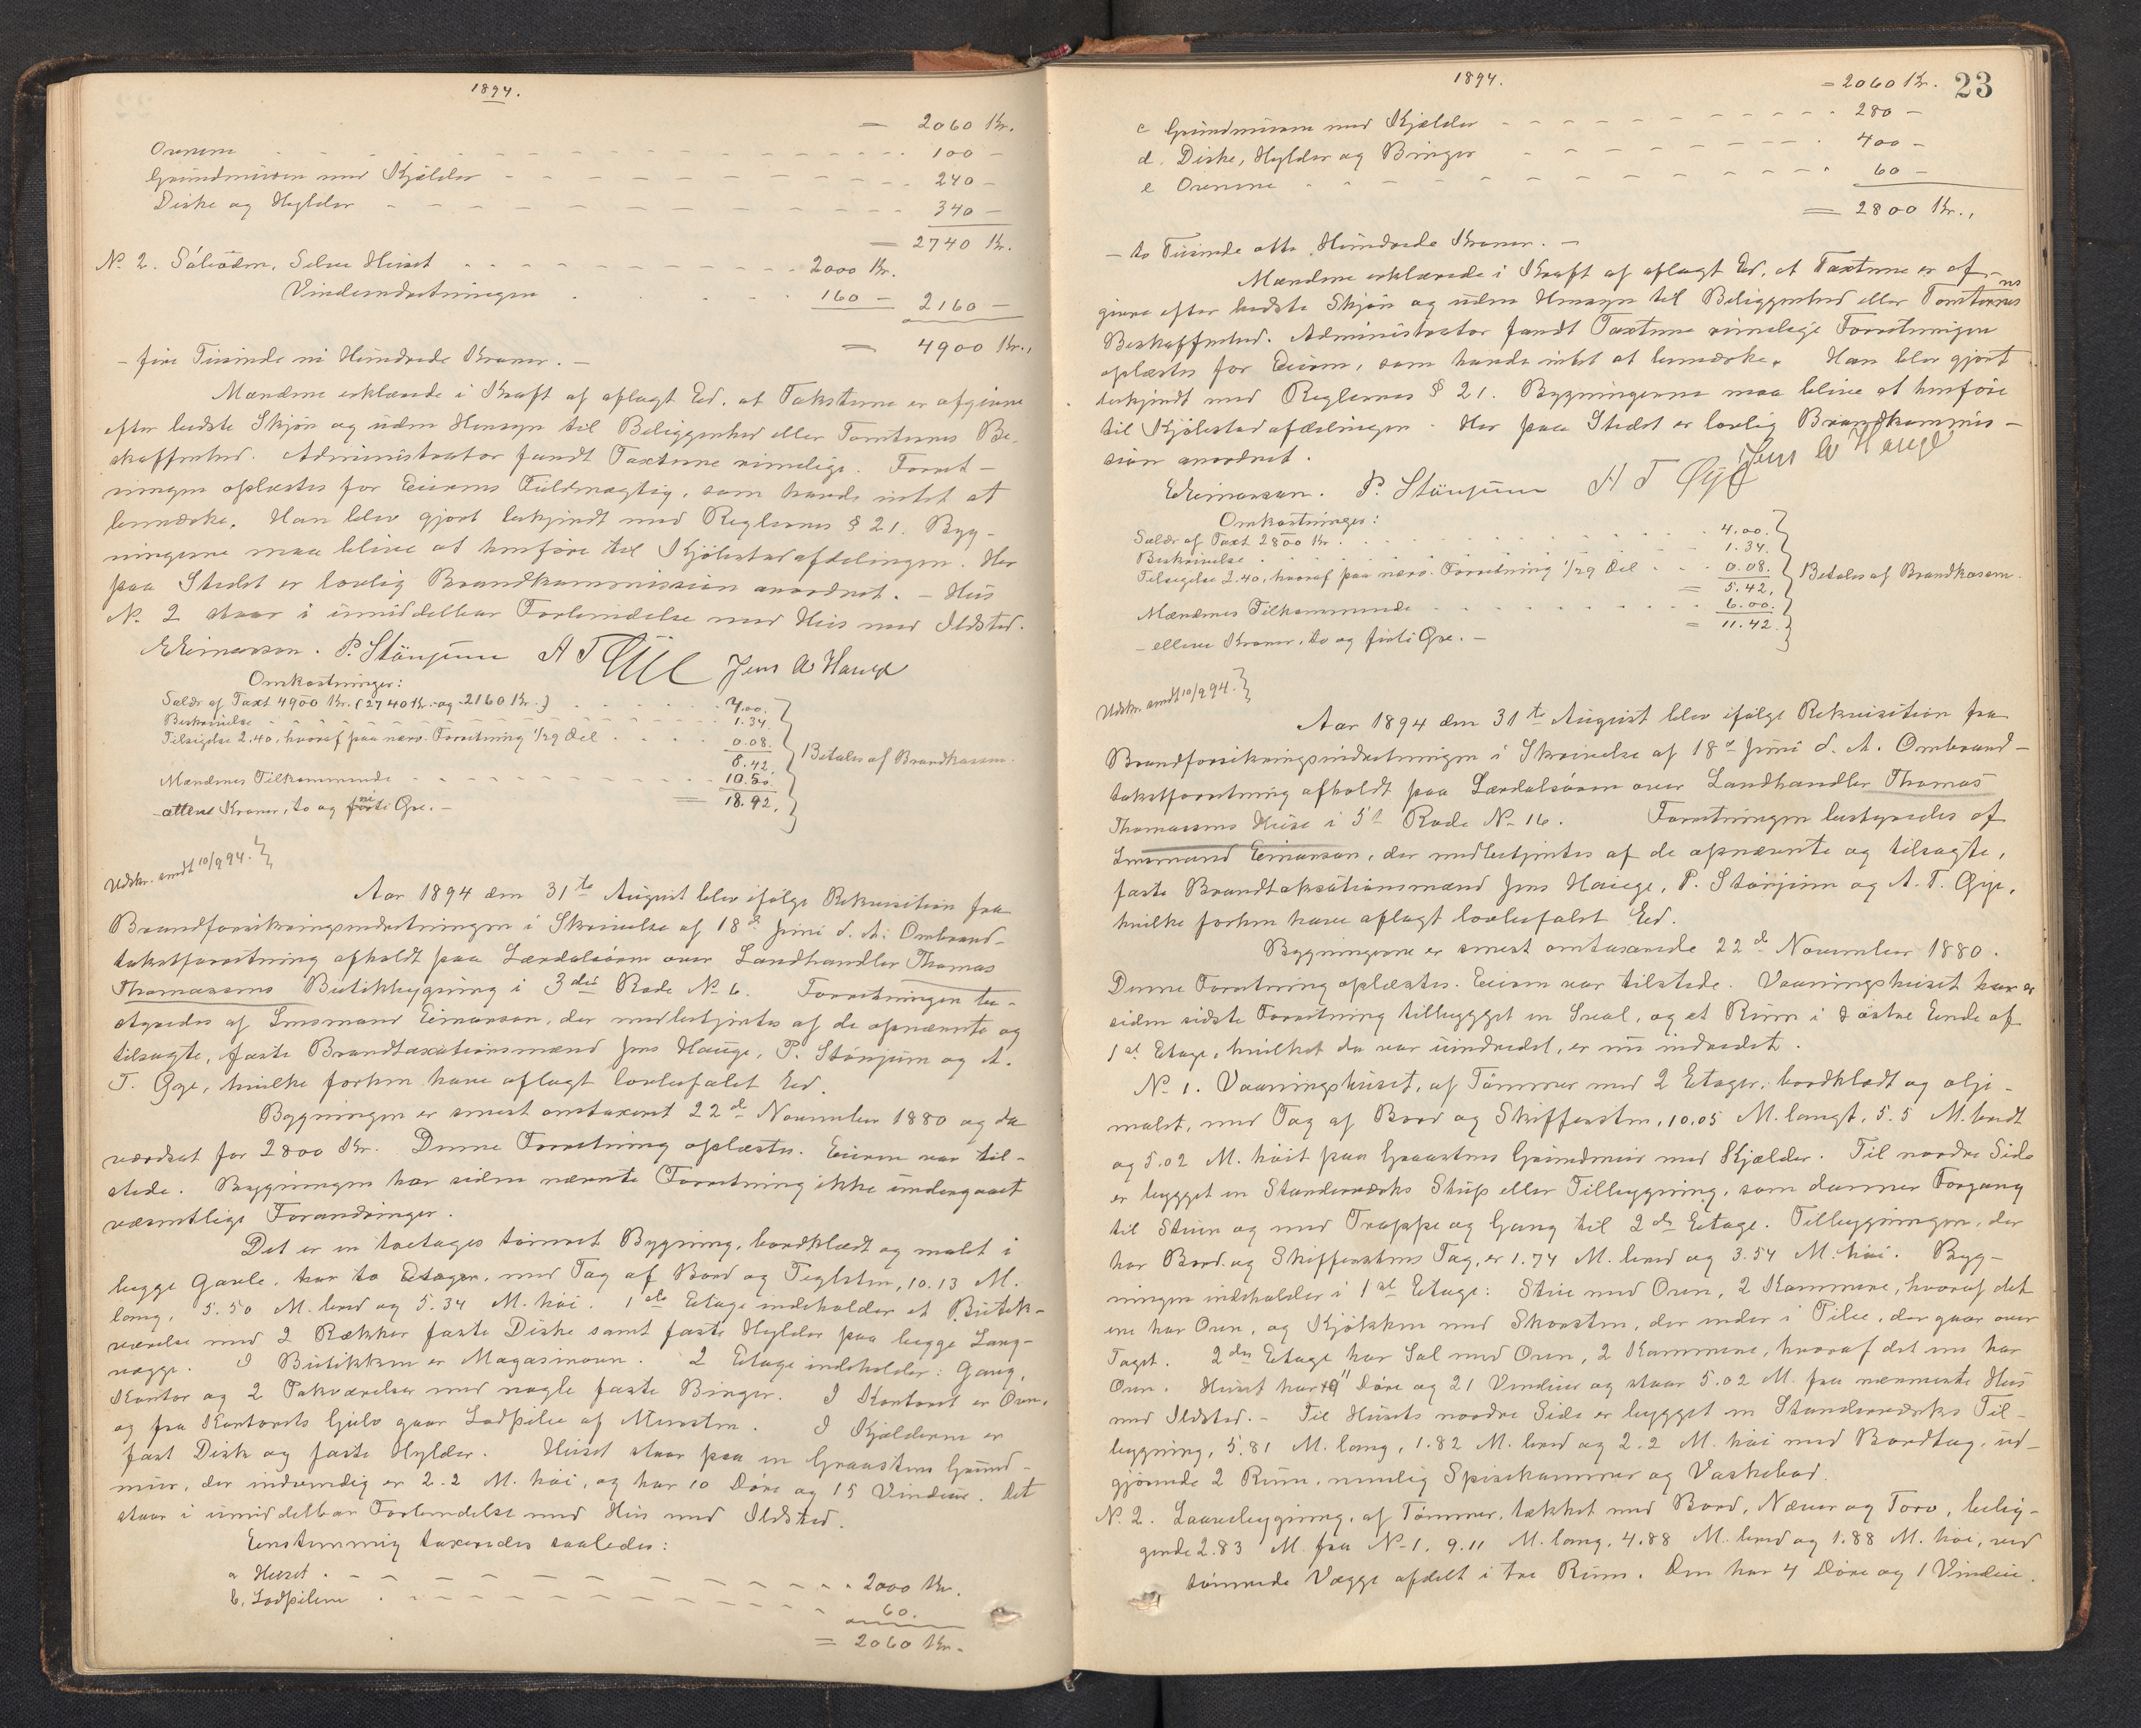 1894.
= 2060 Kr.
Ovnene - - - 100 -
Grundmuren med Kjælder - - - 240 -
Diske og Hylder - - - 340 -
= 2740 Kr.
No 2. Selve Huset - - - 2000 Kr.
Vinderndretningen 160 - 2160 -
= 4900 Kr.,
- fire Tusinde ni Hundrede Kroner. -
Mændene erklærede i Kraft af aflagt Ed, at Taksterne er afgivne
efter bedste Skjøn og uden Hensyn til Beliggenhed eller Tomternes Be-
skaffenhed. Administrator fandt Taxterne rimelige. Forret-
ningen oplæstes for Eierens Fuldmægtig, som havde intet at
bemærke. Han blev gjort bekjendt med Reglernes § 21. Byg-
ningerne maa blive at henføre til Kjøbstadafdelingen. Her
paa Stedet er lovlig Brandkommission anordnet. - Hus
No. 2 staar i umiddelbar Forbindelse med Hus med Ildsted.
E. Einarsen. P. Stønjum A T Øye Jens A Hauge
Omkostninger:
Salær af Taxt 4900 Kr. (2740 Kr. og 2160 Kr.) 7.00.
Beskrivelse 1.34.
Tilsigelse 2.40, hvoraf paa nærv. Forretning 1/29 Del 0.08.
8.42 Betales af Brandkassen.
Mændenes Tilkommende 10.50
= 18.92.
- atten Kroner, to og niti Øre. -
Udskr. sendt 10/9 94.
Aar 1894 den 31te August blev ifølge Rekvisition fra
Brandforsikringsindretningen i Skrivelse af 18de Juni d. A. Ombrand-
takstforretning afholdt paa Lærdalsøren over Landhandler Thomas
Thomassens Butikbygning i 3die Rode No 6. Forretningen be-
styredes af Lensmand Einarsen, der medbetjentes af de opnævnte og
tilsagte, faste Brandtaxationsmænd Jens Hauge, P. Stønjum og A.
T. Øye, hvilke forhen have aflagt lovbefalet Ed.
Bygningen er senest omtaxeret 22de November 1880 og da
værdsat for 2800 Kr. Denne Forretning oplæstes. Eieren var til-
stede. Bygningen har siden nævnte Forretning ikke undergaaet
væsentlige Forandringer.
Det er en toetages tømret Bygning, bordklædt og malet i
begge Gavle, har to Etager, med Tag af Bord og Teglsten, 10.13 M.
lang, 5.50 M. bred og 5.34 M. høi. 1ste Etage indeholder et Butik-
værelse med 2 Rækker faste Diske samt faste Hylder paa begge Lang-
vægge. I Butikken er Magasinovn. 2 Etage indeholder: Gang,
Kontor og 2 Pakværelser med nogle faste Binger. I Kontoret er Ovn,
og fra Kontorets Gulv gaar Lodpibe af Mursten. I Kjælderne er
fast Disk og faste Hylder. Huset staar paa en Graastens Grund-
mur, der indvendig er 2.2 M. høi, og har 10 Døre og 15 Vinduer. Det
staar i umiddelbar Forbindelse med Hus med Ildsted.
Eenstemmig taxeredes saaledes:
a Huset - - - 2000 Kr.
b. Lodpiben - - - 60.
= 2060 Kr.
1894.
= 2060 Kr. 23
c Grundmuren med Kjælder - - - 280 -
d. Diske, Hylder og Binger - - - 400 -
e Ovnene - - - 60 -
= 2800 Kr.,
- to Tusinde otte Hundrede Kroner. -
Mændene erklærede i Kraft af aflagt Ed, at Taxterne er af-
givne efter bedste Skjøn og uden Hensyn til Beliggenhed eller Tomternes
Beskaffenhed. Administrator fandt Taxterne rimelige. Forretningen
oplæstes for Eieren, som havde intet at bemærke. Han blev gjort
bekjendt med Reglernes § 21. Bygningerne maa blive at henføre
til Kjøbstadafdelingen. Her paa Stedet er lovlig Brandkommis-
sion anordnet.
E. Einarsen. P. Stønjum A T Øye Jens A Hauge
Omkostninger:
Salær af Taxt 2800 Kr. 4.00.
Beskrivelse 1.34.
Tilsigelse 2.40, hvoraf paa nærv. Forretning 1/29 Del 0.08. Betales af Brandkassen.
= 5.42.
Mændenes Tilkommende 6.00.
= 11.42.
- elleve Kroner, to og firti Øre. -
Udskr. sendt 10/9 94.
Aar 1894 den 31te August blev ifølge Rekvisition fra
Brandforsikringsindretningen i Skrivelse af 18de Juni d. A. Ombrand-
takstforretning afholdt paa Lærdalsøren over Landhandler Thomas
Thomassens Huse i 5te Rode No 16. Forretningen bestyredes af
Lensmand Einarsen, der medbetjentes af de opnævnte og tilsagte,
faste Brandtaksationsmænd Jens Hauge, P. Stønjum og A. T. Øye,
hvilke forhen have aflagt lovbefalet Ed.
Bygningerne er senest omtaxerede 22de November 1880.
Denne Forretning oplæstes. Eieren var tilstede. Vaaningshuset har
siden sidste Forretning tilbygget en Sval, og et Rum i østre Ende af
1st Etage, hvilket da var uindredet, er nu indredet.
No 1. Vaaningshuset, af Tømmer med 2 Etager, bordklædt og olje-
malet, med Tag af Bord og Skiffersten, 10.05 M. langt, 5.5 M. bredt
og 5.02 M. høit paa Graastens Grundmur med Kjælder. Til nordre Side
er bygget en Standerværks Skup eller Tilbygning, som danner Forgang
til Stuen og med Trappe og Gang til 2den Etage. Tilbygningen, der
har Bord og Skifferstens Tag, er 1.74 M. bred og 3.54 M. høi. Byg-
ningen indeholder i 1ste Etage: Stue med Ovn, 2 Kammere, hvoraf det
ene har Ovn, og Kjøkken med Skorsten, der ender i Pibe, der gaar over
Taget. 2den Etage har Sal med Ovn, 2 Kammere, hvoraf det ene har
Ovn. Huset har Døre og 21 Vinduer og staar 5.02 M. fra nærmeste Hus
med Ildsted. - Til Husets nordre Side er bygget en Standerværks Til-
bygning, 5.81 M. lang, 1.82 M. bred og 2.2 M. høi med Bordtag, ud-
gjørende 2 Rum, nemlig Spisekammer og Vaskebod.
No. 2. Laavebygning, af Tømmer, tækket med Bord, Næver og Torv, belig-
gende 2.83 M. fra No 1, 9.11 M. lang, 4.88 M. bred og 1.88 M. høi, ved
tømrede Vægge afdelt i tre Rum. Den har 4 Døre og 1 Vindue.